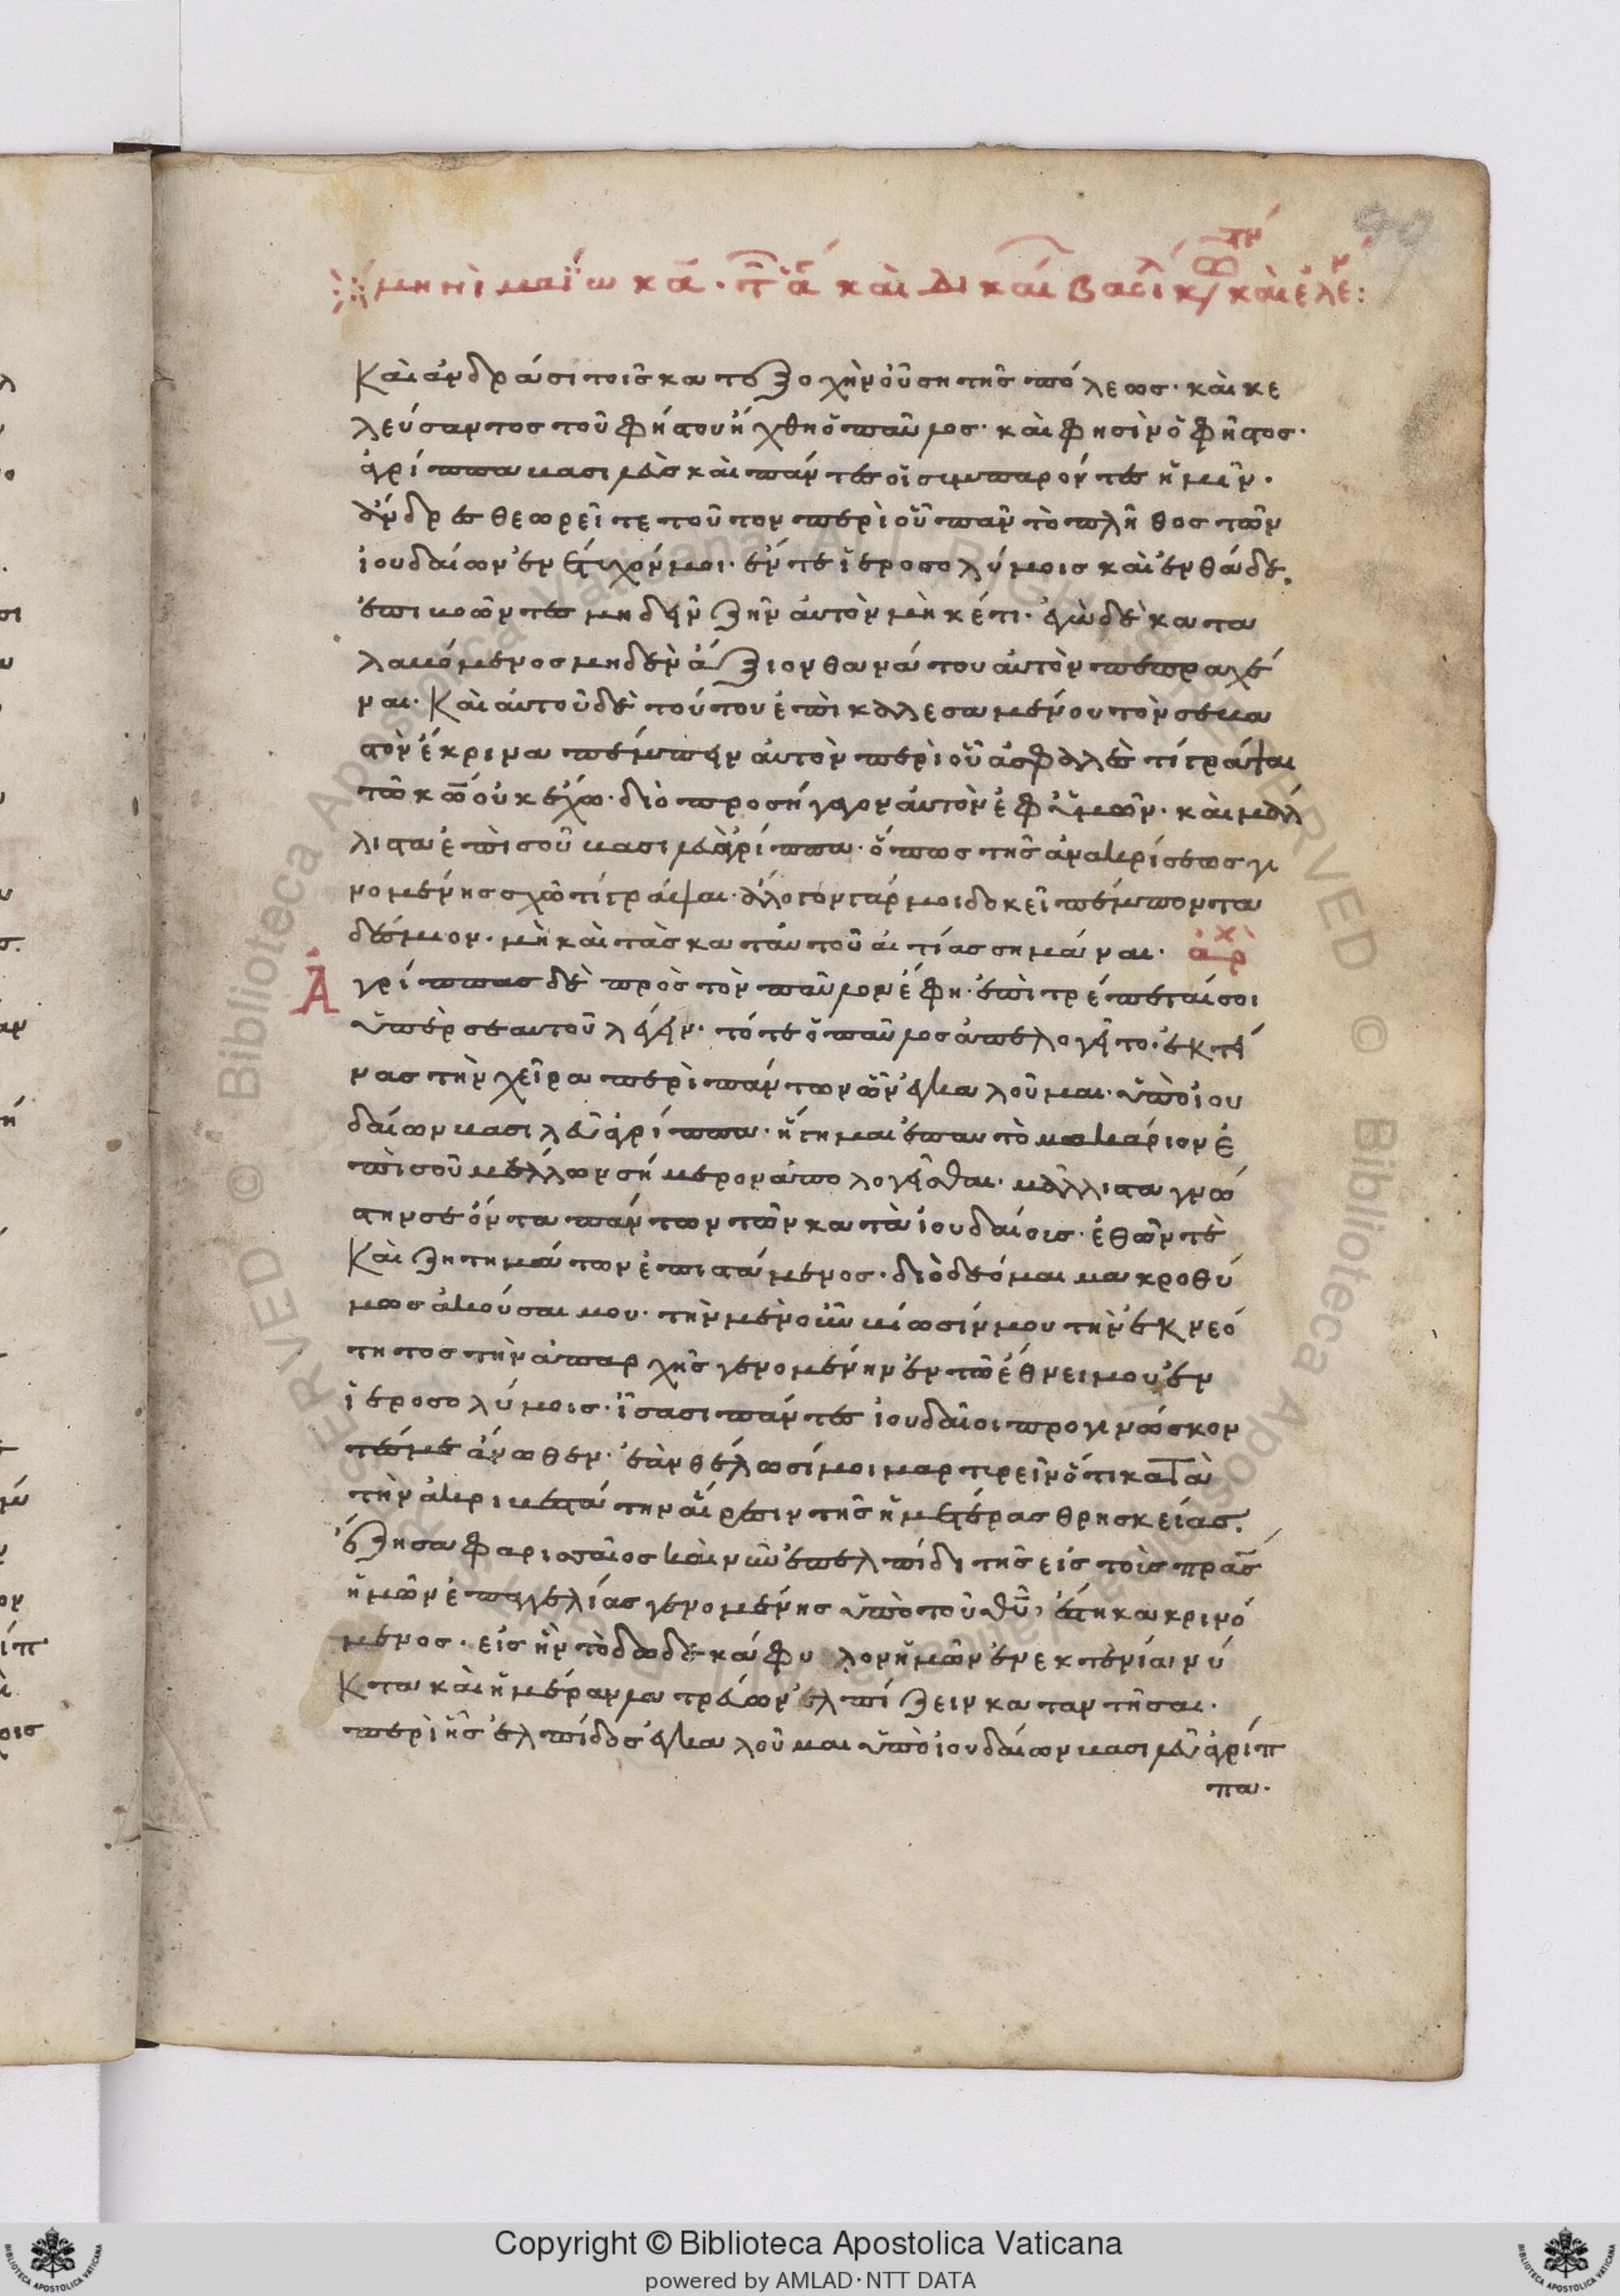 90
μηνὶ μαΐω κα. τῶ ἁ καὶ δικαί βασι κ/ καὶ ἑλε:
Καὶ ἀνδράσι τοῖς κατ ἐξοχὴν οὖση τῆς πόλεως. καὶ κε
λεύσαντος τοῦ φήστου ἤχθη ὁ παῦλος. καὶ φησὶν ὁ φῆστος.
ἀγρίππα βασιλεῦ καὶ πάντες οἱ συμπαρόντες ἡμῖν.
ἄνδρες θεωρεῖτε τοῦτον περὶ οὗ πᾶν τὸ πλῆθος τῶν
ἰουδαίων ἐνέτυχόν μοι. ἔν τε ἱεροσολύμοις καὶ ἐνθάδε.
ἐπιβοῶντες μὴ δεῖν ζῆν αὐτὸν μὴκέτι. ἐγὼ δὲ κατα
λαβόμενος μηδὲν ἄξιον θανάτου αὐτὸν πεπραχέ
ναι. Καὶ αὐτοῦ δὲ τούτου ἐπικαλεσαμένου τὸν σεβα
στὸν ἔκρινα πέμπειν αὐτὸν περὶ οὗ ἀσφαλές τί γράψαι
τῶ κῶ οὐκ ἔχω. διὸ προσήγαγον αὐτὸν ἐφ ὑμῶν. καὶ μάλ
λιστα ἐπὶ σοῦ βασιλεῦ ἀγρίππα. ὅπως τῆς ἀνακρίσεως γε
νομένης σχῶ τί γράψαι. ἄλογον γάρ μοι δοκεῖ πέμποντα
δέσμιον. μὴ καὶ τὰς κατ αὐτοῦ αἰτίας σημάναι. ἀρχ
Ἀγρίππας δὲ πρὸς τὸν παῦλον ἔφη. ἐπιτρέπεταί σοι
ὑπὲρ σεαυτοῦ λέγειν. τότε ὁ παῦλος ἀπελογεῖτο. ἐκτεί
νας τὴν χεῖρα περὶ πάντων ὧν ἐγκαλοῦμαι. ὑπὸ ἰου
δαίων βασιλεῦ ἀγρίππα. ἥγημαι ἐμαυτὸ μακάριον ἐ
πὶ σοῦ μέλλων σήμερον ἀπολογεῖσθαι. μάλλιστα γνώ
στην σε ὄντα πάντων τῶν κατὰ ἰουδαίοις. ἐθῶν τὲ
Καὶ ζητημάτων ἐπιστάμενος. διὸ δέομαι μακροθύ
μως ἀκοῦσαι μου. τὴν μὲν οὖν βίωσίν μου τὴν ἐκ νεό
τητος τὴν ἀπαρχῆς γενομένην ἐν τῶ ἔθνει μου ἐν
ἱεροσολύμοις. ἴσασι πάντες ἰουδαῖοι προγινώσκον
τές με ἄνωθεν. ἐὰν θέλωσί μοι μαρτυρεῖν ὅτι κατὰ
τὴν ἀκριβεστάτην αἵρεσιν τῆς ἡμετέρας θρησκείας.
ἔζησα φαρισαῖος καὶ νῦν ἐπ ἐλπίδι τῆς εἰς τοὺς πρας
ἡμῶν ἐπαγγελίας γενομένης ὑπὸ τοῦ θῦ, ἕστηκα κρινό
μενος. εἰς ἣν τὸ δωδεκάφυλον ἡμῶν ἐν ἐκτενία νύ
Κτα καὶ ἡμέραν λατρεύων ἐλπίζειν καταντῆσαι.
περὶ ἧς ἐλπίδος ἐγκαλοῦμαι ὑπὸ ἰουδαίων βασιλεῦ ἀγρίπ
πα.
Copyright © Biblioteca Apostolica Vaticana
powered by AMLAD·NTT DATA